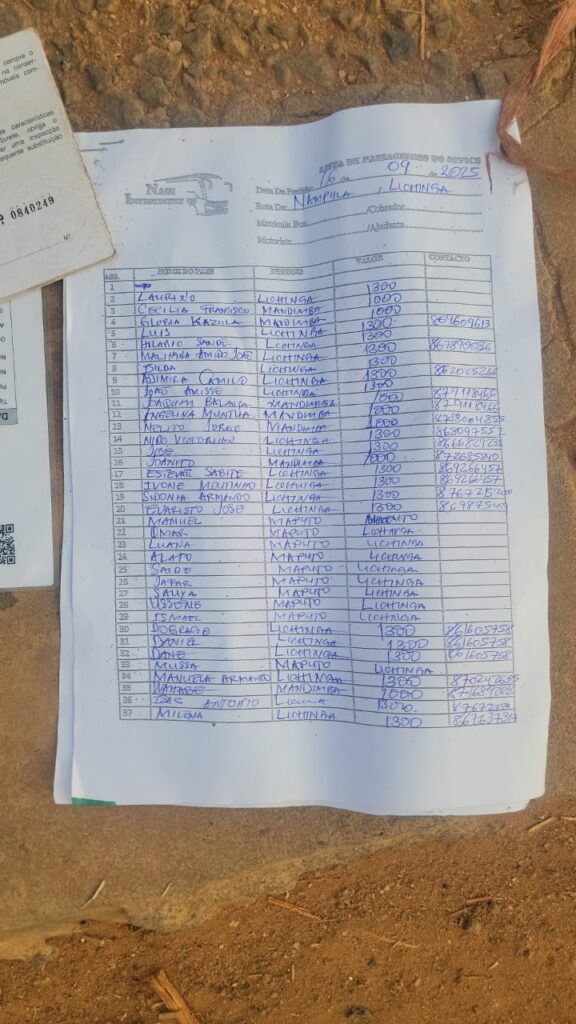 sempre o
na conser-
móveis com-
características
livrete, obriga o
er uma inspecção
equente substituição
0840249
MT
NAGI
INVESTMENT
LISTA DE PASSAGEIROS DO OFFICE
Data Da Partida: 16 de 09 de 2025
Rota De: NAMPULA , LICHINGA
Matricula Bus /Cobrador
Motorista /Ajudante
NOME DO PASS DESTINO VALOR CONTACTO
1
2 LAURINO LICHINGA 1300
3 CECILIA FRANCISCO MANDIMBA 1000
4 GLORIA KAZULA MANDIMBA 1000
5 LUIS LICHINGA 1300 869609613
6 HILARIO SANDE LICHINGA 1300
7 LICHINGA 1300 867890036
8 ISILDA LICHINGA 1300
9 ADIMIRA CAMILO LICHINGA 1300
10 JOÃO AMISSE LICHINGA 1300
11 JOAQUIM MANDIMBA 1000
12 ANGELINA MANDIMBA 1000
13 NELITO JORGE MANDIMBA 1000
14 NIRO VICTORINO LICHINGA 1300
15 JOSE LICHINGA 1300
16 JOANITO MANDIMBA 1000
17 ESTEVÃO SABITE LICHINGA 1300 869266457
18 IVONE MOUTINHO LICHINGA 1300 869266457
19 SIDONIA ARMANDO LICHINGA 1300
20 EVARISTO JOSE LICHINGA 1300
21 MANUEL MAPUTO
22 OMAR MAPUTO LICHINGA
23 LUANA MAPUTO LICHINGA
24 ALATO MAPUTO LICHINGA
25 SAIDE MAPUTO LICHINGA
26 JAFAR MAPUTO LICHINGA
27 SAUYA MAPUTO LICHINGA
28 USSENE MAPUTO LICHINGA
29 ISMAEL MAPUTO LICHINGA
30 LICHINGA 1300 861605758
31 DANIEL LICHINGA 1300 861605758
32 DANE LICHINGA 1300 861605758
33 MUSSA MAPUTO LICHINGA
34 MANUELA ARMANDO LICHINGA 1300
35 MANDIMBA 1000
36 ANTONIO 1300
37 MILENA LICHINGA 1300